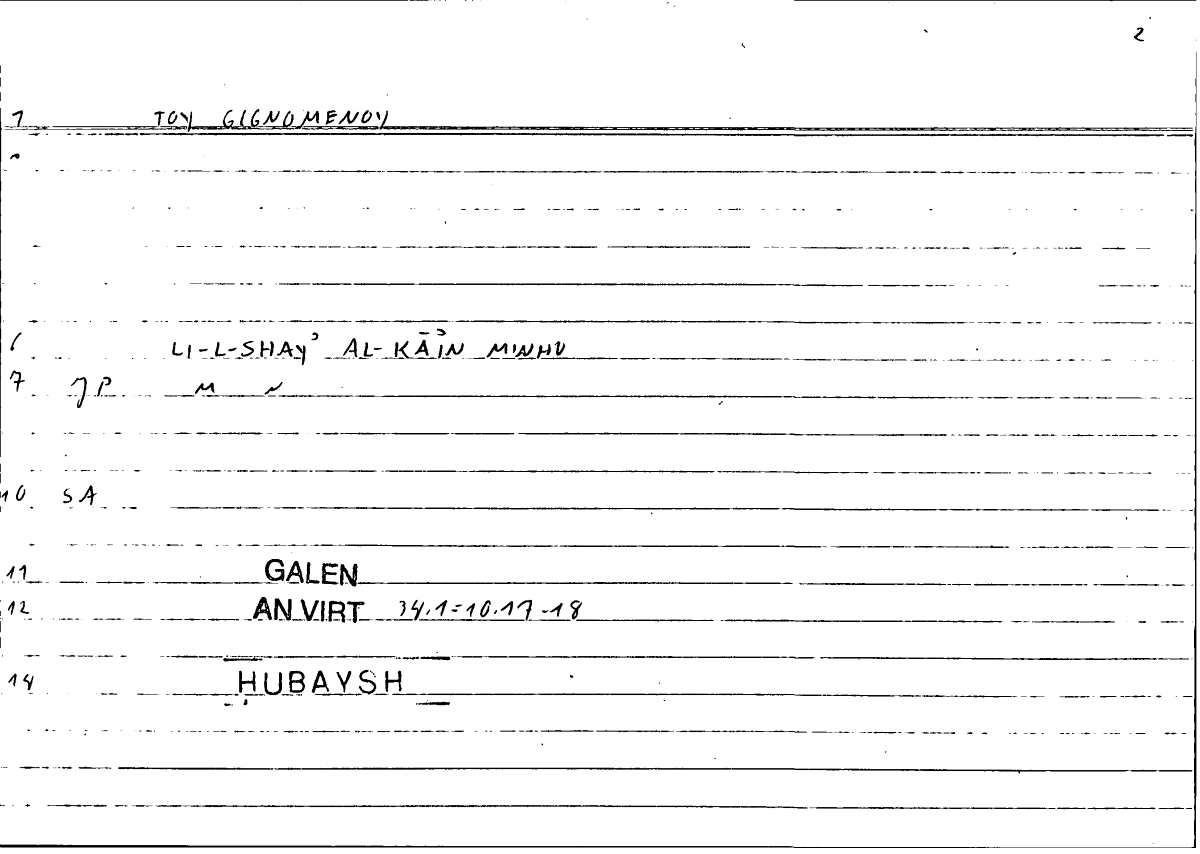 2
1 TOY GIGNOMENOY
6 LI-L-SHAYʾ AL-KĀʾIN MINHU
7 JP M N
10 SA
11 GALEN
12 AN VIRT 34.1=10.17-18
14 HUBAYSH